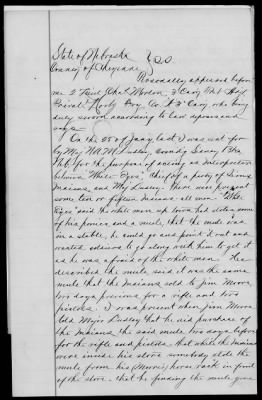 State of Nebraska
County of Cheyenne } SS.
Personally appeared before
me 2 Lieut Jno. 3 Cavy Act Adjt
Private Co. A 3" Cavy who being
duly sworn according to law deposeth and
says.
On the 25 of Jany last I was sent for
by Maj N.A.M. Dudley, Comdg Sidney Bks
Neb. for the purpose of acting as Interpreter
between "White Eyes" Chief of a party of Sioux
Indians and Maj Dudley. There were present
some ten or fifteen Indians all men "White
Eyes" said the white men up town had stolen some
of his ponies and a mule, that the mule was
in a stable, he could go and point it out and
wanted soldiers to go along with him to get it
as he was afraid of the white men. He
described the mule said it was the same
mule that the Indians sold to Jim Moore
two days previous for a rifle and two
pistols. I was present when Jim Moore
told Major Dudley that he did purchase of
the Indians the said mule two days before
for the rifle and pistols, that while the Indians
were inside his store somebody stole the
mule from his (Moore's) horse rack in front
of the store, that he finding the mule gone